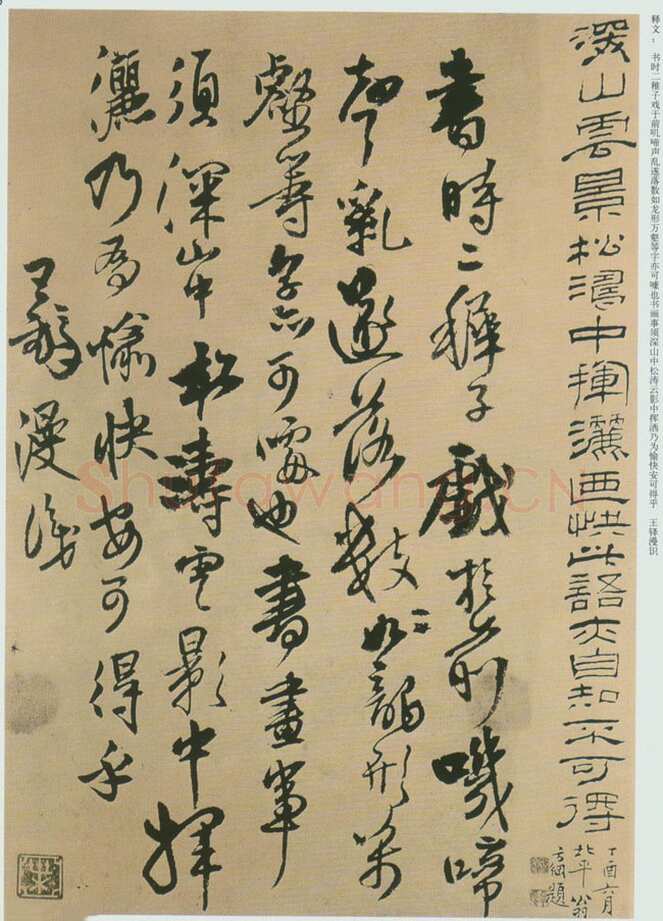 释文： 书时二稚子戏于前叽啼声乱遂落数如龙形万壑等字亦可噱也书画事须深山中松涛云影中挥洒乃为愉快安可得乎 王铎漫识
深山雲景松濤中揮灑快此語亦自知不可得
丁酉六月
北平翁
方綱題
書時二稺子戲於前嘰啼
聲亂遂落數如龍形萬
壑等字亦可噱也書畫事
須深山中松濤雲影中揮
灑乃為愉快安可得乎
王鐸漫識
ShufaWang.CN